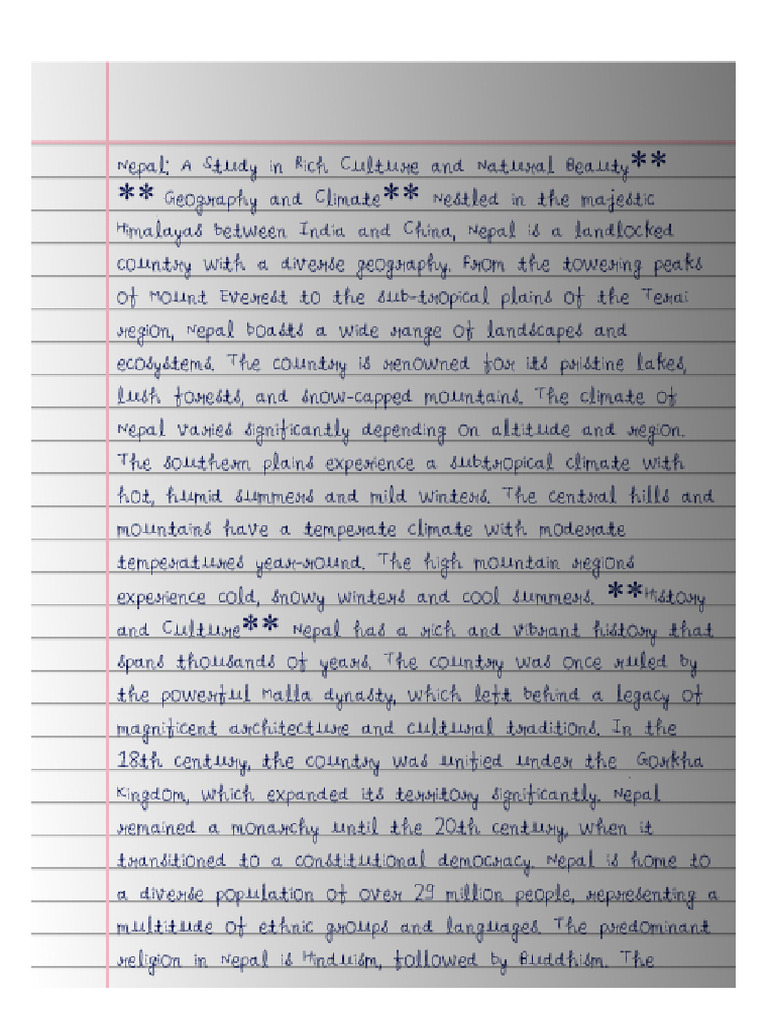 Nepal: A Study in Rich Culture and Natural Beauty**
** Geography and Climate** Nestled in the majestic
Himalayas between India and China, Nepal is a landlocked
country with a diverse geography. From the towering peaks
of Mount Everest to the sub-tropical plains of the Terai
region, Nepal boasts a wide range of landscapes and
ecosystems. The country is renowned for its pristine lakes,
lush forests, and snow-capped mountains. The climate of
Nepal varies significantly depending on altitude and region.
The southern plains experience a subtropical climate with
hot, humid summers and mild winters. The central hills and
mountains have a temperate climate with moderate
temperatures year-round. The high mountain regions
experience cold, snowy winters and cool summers. **History
and Culture** Nepal has a rich and vibrant history that
spans thousands of years. The country was once ruled by
the powerful Malla dynasty, which left behind a legacy of
magnificent architecture and cultural traditions. In the
18th century, the country was unified under the Gorkha
Kingdom, which expanded its territory significantly. Nepal
remained a monarchy until the 20th century, when it
transitioned to a constitutional democracy. Nepal is home to
a diverse population of over 29 million people, representing a
multitude of ethnic groups and languages. The predominant
religion in Nepal is Hinduism, followed by Buddhism. The